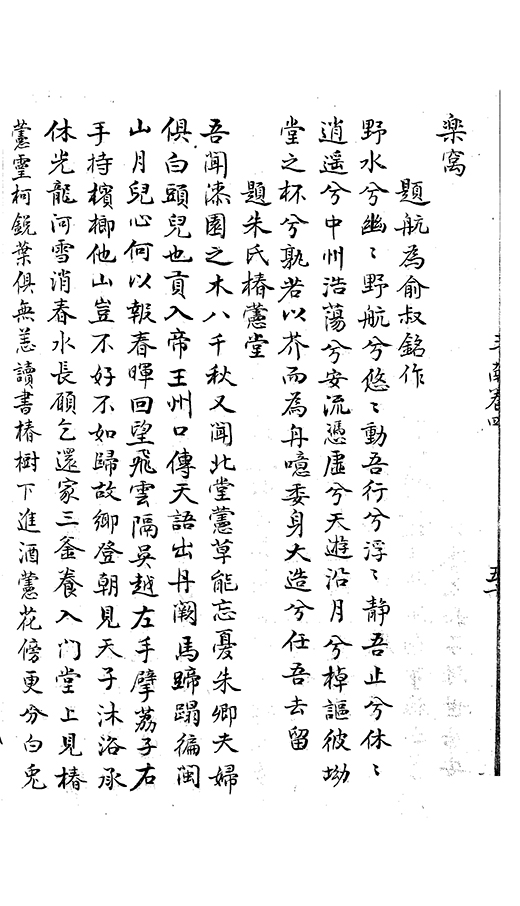 楽窩
題航為俞叔銘作
野水兮幽〻野航兮悠〻動吾行兮浮〻静吾止兮休〻
逍遥兮中州浩蕩兮安流憑虛兮天遊沿月兮棹謳彼坳
堂之杯兮孰若以芥而為舟噫委身大造兮任吾去留
題朱氏椿萱堂
吾聞漆園之木八千秋又聞北堂萱草能忘憂朱卿夫婦
俱白頭兒也貢入帝王州口傳天語出丹闕馬蹄蹋徧閩
山月兒心何以報春暉回望飛雲隔吳越左手擘荔子右
手持檳榔他山豈不好不如歸故鄉登朝見天子沐浴承
休光龍河雪消春水長願乞還家三釜養入门堂上見椿
萱靈柯銳葉俱無恙讀書椿樹下進酒萱花傍更分白兎